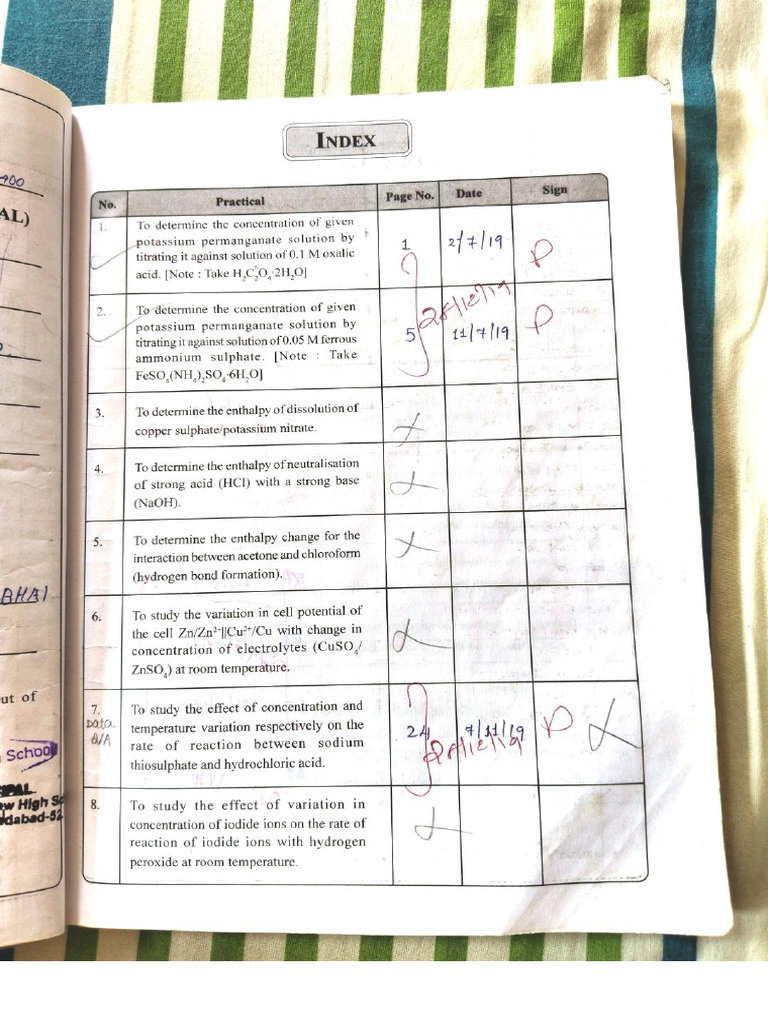 INDEX
No. Practical Page No. Date Sign
1. To determine the concentration of given
potassium permanganate solution by
titrating it against solution of 0.1 M oxalic
acid. [Note : Take H₂C₂O₄·2H₂O]
1 2/7/19
2. To determine the concentration of given
potassium permanganate solution by
titrating it against solution of 0.05 M ferrous
ammonium sulphate. [Note : Take
FeSO₄(NH₄)₂SO₄·6H₂O]
5 11/7/19
28/12/19
3. To determine the enthalpy of dissolution of
copper sulphate/potassium nitrate.
4. To determine the enthalpy of neutralisation
of strong acid (HCl) with a strong base
(NaOH).
5. To determine the enthalpy change for the
interaction between acetone and chloroform
(hydrogen bond formation).
6. To study the variation in cell potential of
the cell Zn/Zn²⁺||Cu²⁺/Cu with change in
concentration of electrolytes (CuSO₄/
ZnSO₄) at room temperature.
7. To study the effect of concentration and
temperature variation respectively on the
rate of reaction between sodium
thiosulphate and hydrochloric acid.
Data
24 7/11/19
28/12/19
8. To study the effect of variation in
concentration of iodide ions on the rate of
reaction of iodide ions with hydrogen
peroxide at room temperature.
900
AL)
BHAI
ut of
School
IPAL
ew High Sc
edabad-52